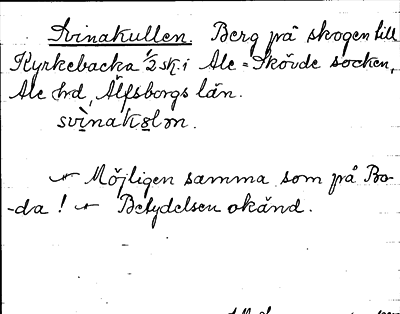 Svinakullen. Berg på skogen till
Kyrkebacka 1/2 sk. i Ale-Skövde socken,
Ale hrd, Älfsborgs län.
svinakȯlən.
Möjligen samma som på Bo-
-da! Betydelsen okänd.